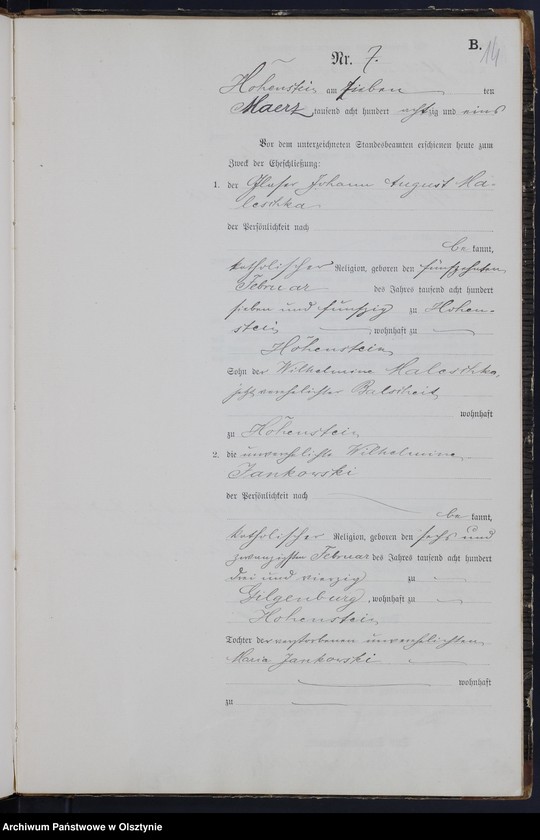 B.
14
Nr. 7.
Hohenstein am sieben ten
Maerz tausend acht hundert achtzig und eins
Vor dem unterzeichneten Standesbeamten erschienen heute zum
Zweck der Eheschließung:
1. der Glaser Johann August Ma-
leschka
der Persönlichkeit nach
be kannt,
katholischer Religion, geboren den fünfzehnten
Februar des Jahres tausend acht hundert
sieben und funfzig zu Hohen-
stein, wohnhaft zu
Hohenstein
Sohn der Wilhelmine Maleschka,
jetzt verehelichter Balscheit
wohnhaft
zu Hohenstein
2. die unverehelichte Wilhelmine
Jankowski
der Persönlichkeit nach
be kannt,
katholischer Religion, geboren den sechs und
zwanzigsten Februar des Jahres tausend acht hundert
drei und vierzig zu
Gilgenburg, wohnhaft zu
Hohenstein
Tochter der verstorbenen unverehelichten
Maria Jankowski
wohnhaft
zu
Archiwum Państwowe w Olsztynie